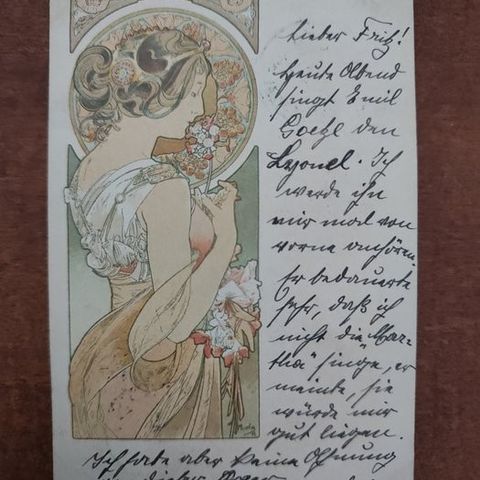 Lieber Fritz!
Heute Abend
singt Emil
Goetze den
Lyonel. Ich
werde ihn
mir mal von
vorne anhören.
Er bedauerte
sehr, daß ich
nicht die „Mar-
tha" singe, er
meinte, sie
würde mir
gut liegen.
Ich habe aber keine Ahnung
Mucha